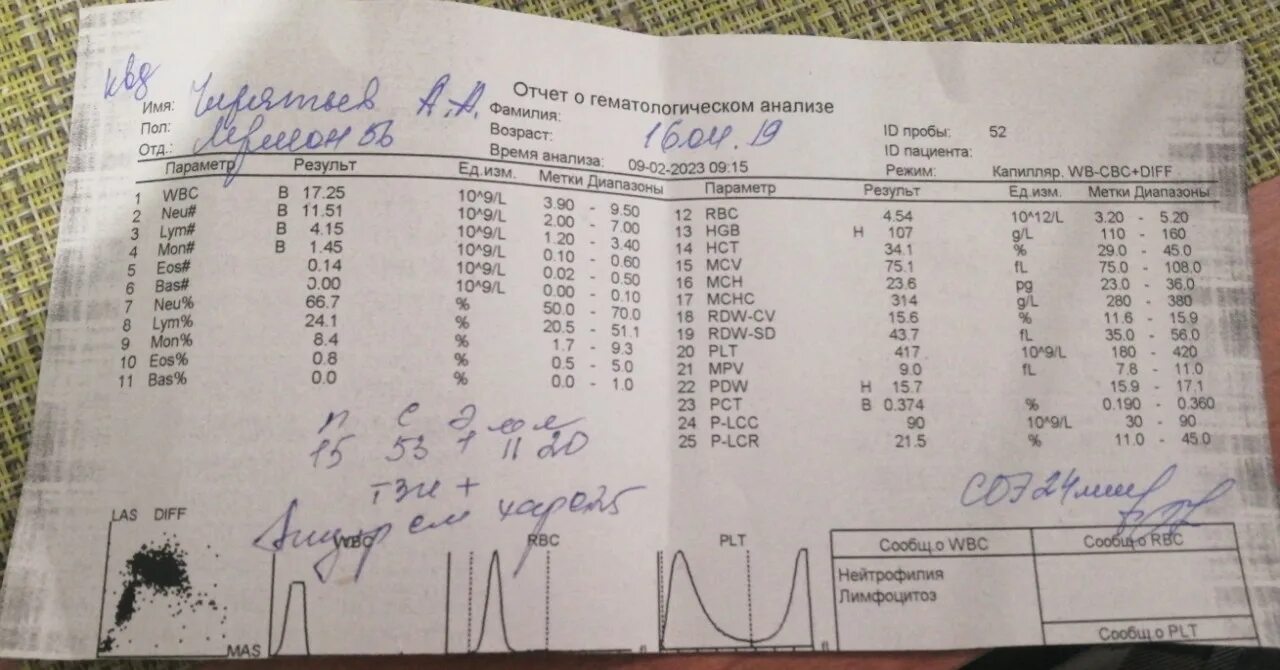 КВД
Отчет о гематологическом анализе
Имя: А.А. Фамилия:
Пол: Возраст: 16.04.19 ID пробы: 52
Отд.: Время анализа: 09-02-2023 09:15 ID пациента:
Режим: Капилляр. WB-CBC+DIFF
Параметр Результ Ед.изм. Метки Диапазоны Параметр Результ Ед.изм. Метки Диапазоны
1 WBC В 17.25 10^9/L 3.90 - 9.50 12 RBC 4.54 10^12/L 3.20 - 5.20
2 Neu# В 11.51 10^9/L 2.00 - 7.00 13 HGB Н 107 g/L 110 - 160
3 Lym# В 4.15 10^9/L 1.20 - 3.40 14 HCT 34.1 % 29.0 - 45.0
4 Mon# В 1.45 10^9/L 0.10 - 0.60 15 MCV 75.1 fL 75.0 - 108.0
5 Eos# 0.14 10^9/L 0.02 - 0.50 16 MCH 23.6 pg 23.0 - 36.0
6 Bas# 0.00 10^9/L 0.00 - 0.10 17 MCHC 314 g/L 280 - 380
7 Neu% 66.7 % 50.0 - 70.0 18 RDW-CV 15.6 % 11.6 - 15.9
8 Lym% 24.1 % 20.5 - 51.1 19 RDW-SD 43.7 fL 35.0 - 56.0
9 Mon% 8.4 % 1.7 - 9.3 20 PLT 417 10^9/L 180 - 420
10 Eos% 0.8 % 0.5 - 5.0 21 MPV 9.0 fL 7.8 - 11.0
11 Bas% 0.0 % 0.0 - 1.0 22 PDW Н 15.7 15.9 - 17.1
23 PCT В 0.374 % 0.190 - 0.360
24 P-LCC 90 10^9/L 30 - 90
25 P-LCR 21.5 % 11.0 - 45.0
п с э мон л
15 53 1 11 20
тзн +
СОЭ 24мм/ч
LAS DIFF WBC RBC PLT
MAS
Сообщ.о WBC Сообщ.о RBC
Нейтрофилия
Лимфоцитоз
Сообщ.о PLT